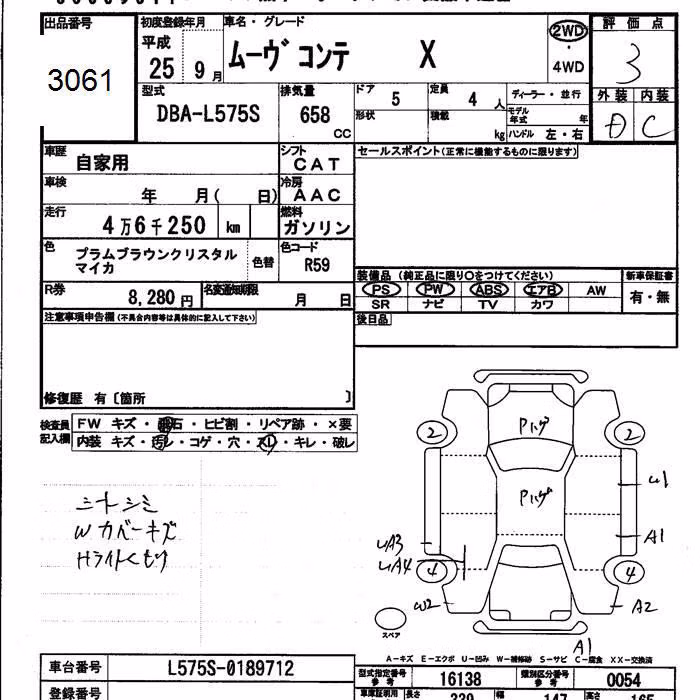 出品番号
3061
初度登録年月
平成
25 9 月
車名・グレード
ムーヴ コンテ X
2WD
4WD
評価点
3
外装 内装
D C
型式
DBA-L575S
排気量
658
CC
ドア
5
定員
4 人
ディーラー・並行
形状
積載
kg
モデル年式 年
ハンドル 左・右
車歴
自家用
シフト
CAT
車検
年 月( 日)
冷房
AAC
走行
4万6千250 km
燃料
ガソリン
色
プラムブラウンクリスタル
マイカ
色替
色コード
R59
R券
8,280円
名変通知期限
月 日
セールスポイント(正常に機能するものに限ります)
装備品(純正品に限り○をつけてください)
新車保証書
PS PW ABS エアB AW
有・無
SR ナビ TV カワ
後日品
注意事項申告欄(不具合内容等は具体的に記入して下さい)
修復歴 有〔箇所 〕
検査員
記入欄
FW キズ・飛石・ヒビ割・リペア跡・×要
内装 キズ・汚レ・コゲ・穴・スレ・キレ・破レ
シートシミ
W カバーキズ
Hライトくもり
Pハゲ
2
2
Pハゲ
W1
UA3
UA4
A1
4
4
W2
A2
スペア
A1
A-キズ E-エクボ U-凹み W-補修跡 S-サビ C-腐食 XX-交換済
車台番号
L575S-0189712
型式指定番号
参考
16138
類別区分番号
参考
0054
登録番号